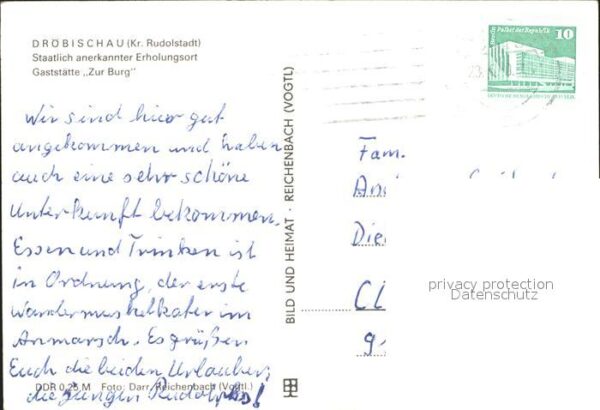 DRÖBISCHAU (Kr. Rudolstadt)
Staatlich anerkannter Erholungsort
Gaststätte „Zur Burg"
Wir sind hier gut
angekommen und haben
auch eine sehr schöne
Unterkunft bekommen.
Essen und Trinken ist
in Ordnung, der erste
Wandermuskelkater im
Anmarsch. Es grüßen
Euch die beiden Urlauber,
die jungen
DDR 0,25 M Foto: Darr, Reichenbach (Vogtl.)
BILD UND HEIMAT · REICHENBACH (VOGTL)
Berlin Palast der Republik
10
Fam.
privacy protection
Datenschutz